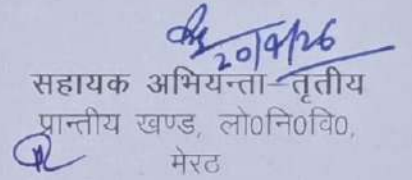 20/9/26
सहायक अभियन्ता-तृतीय
प्रान्तीय खण्ड, लो०नि०वि०,
मेरठ